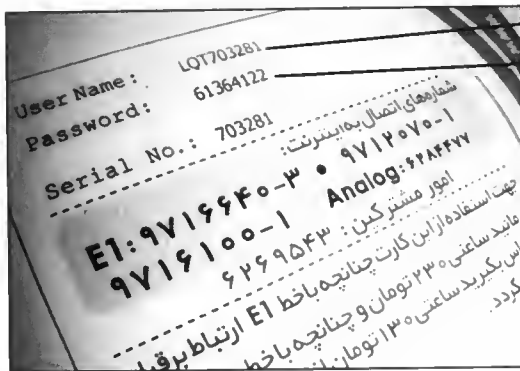 User Name: LQT703281
Password: 61364122
Serial No.: 703281
شماره‌های اتصال به اینترنت:
E1: ۹۷۱۶۶۴۰-۳ • ۹۷۱۲۰۷۰-۱
۹۷۱۶۱۰۰-۱ Analog: ۶۲۸۴۴۷۷
امور مشترکین: ۶۲۶۹۵۴۳
جهت استفاده از این کارت چنانچه با خط E1 ارتباط برقرار
مانید ساعتی ۲۳۰ تومان و چنانچه با خط
اس بگیرید ساعتی ۱۳۰ تومان از
گردد.